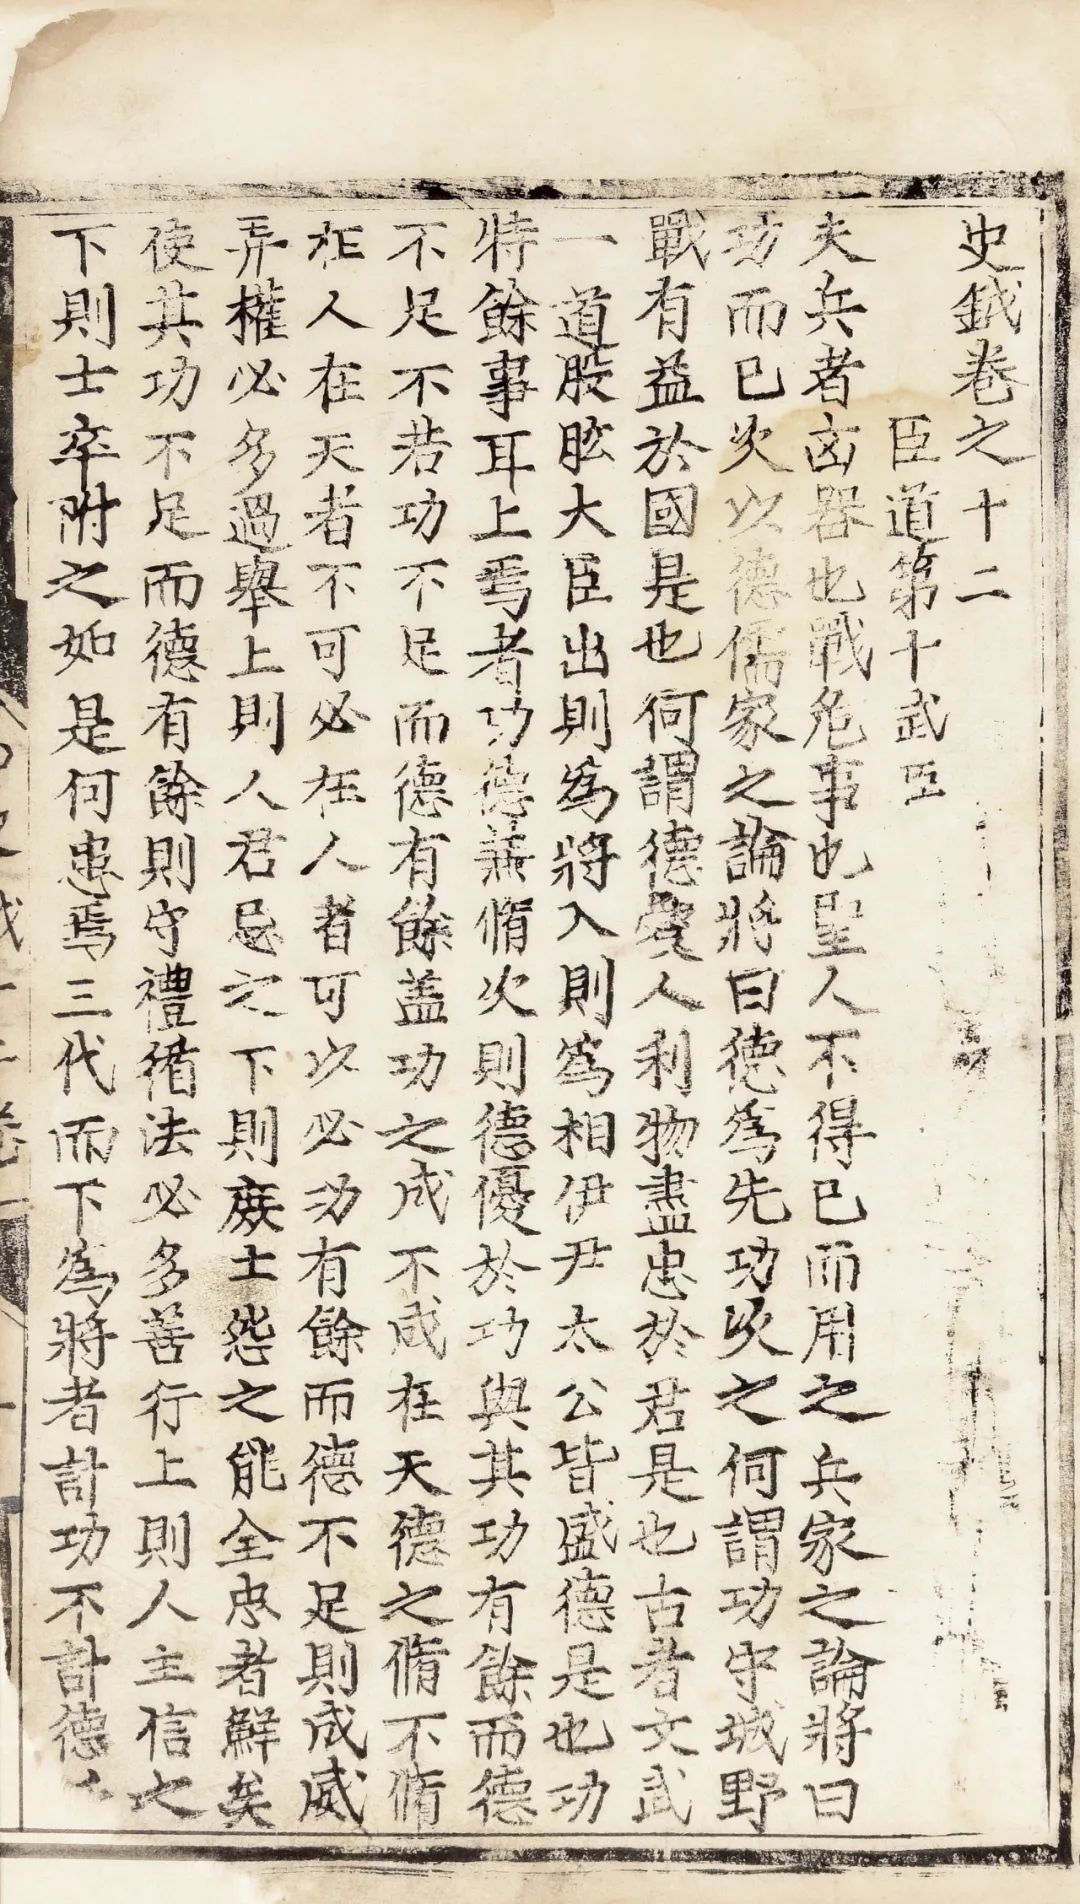 史鉞卷之十二
臣道第十武臣
夫兵者凶器也戰危事也聖人不得已而用之兵家之論將曰
功而已次以德儒家之論將曰德爲先功次之何謂功守城野
戰有益於國是也何謂德愛人利物盡忠於君是也古者文武
一道股肱大臣出則爲將入則爲相伊尹太公皆盛德是也功
特餘事耳上焉者功德兼脩次則德優於功與其功有餘而德
不足不若功不足而德有餘盖功之成不成在天德之脩不脩
在人在天者不可必在人者可以必功有餘而德不足則成威
弄權必多過舉上則人君忌之下則族士怨之能全忠者鮮矣
使其功不足而德有餘則守禮循法必多善行上則人主信之
下則士卒附之如是何患焉三代而下爲將者計功不計德